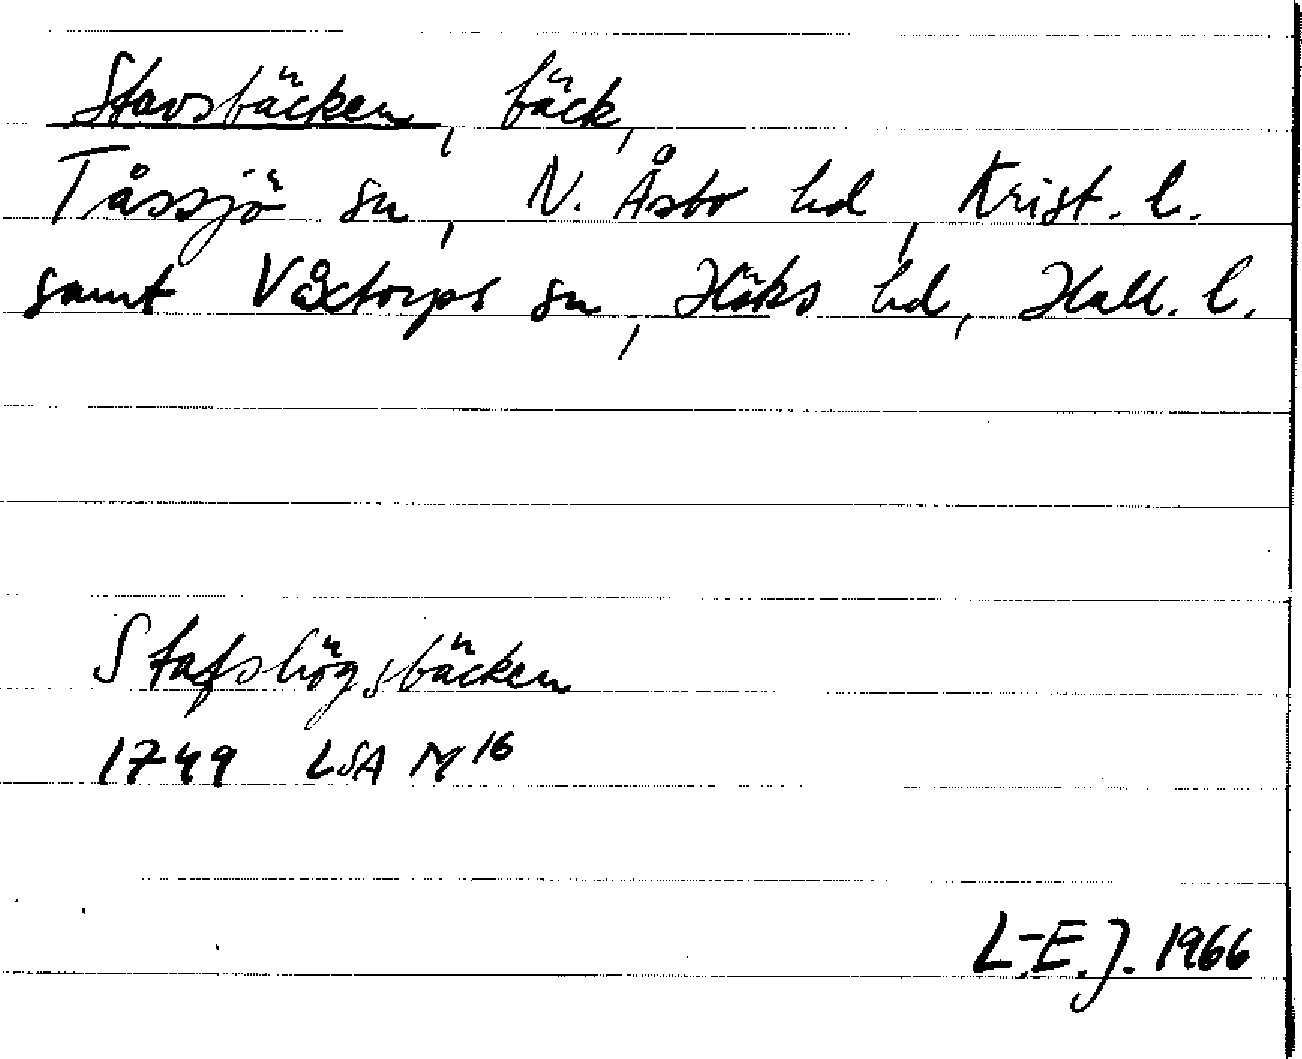 Stavsbäcken, bäck,
Tåssjö sn, N. Åsbo hd, Krist. l.
samt Våxtorps sn, Höks hd, Hall. l.
Stafshögsbäcken
1749 LSA M16
L.-E. J. 1966